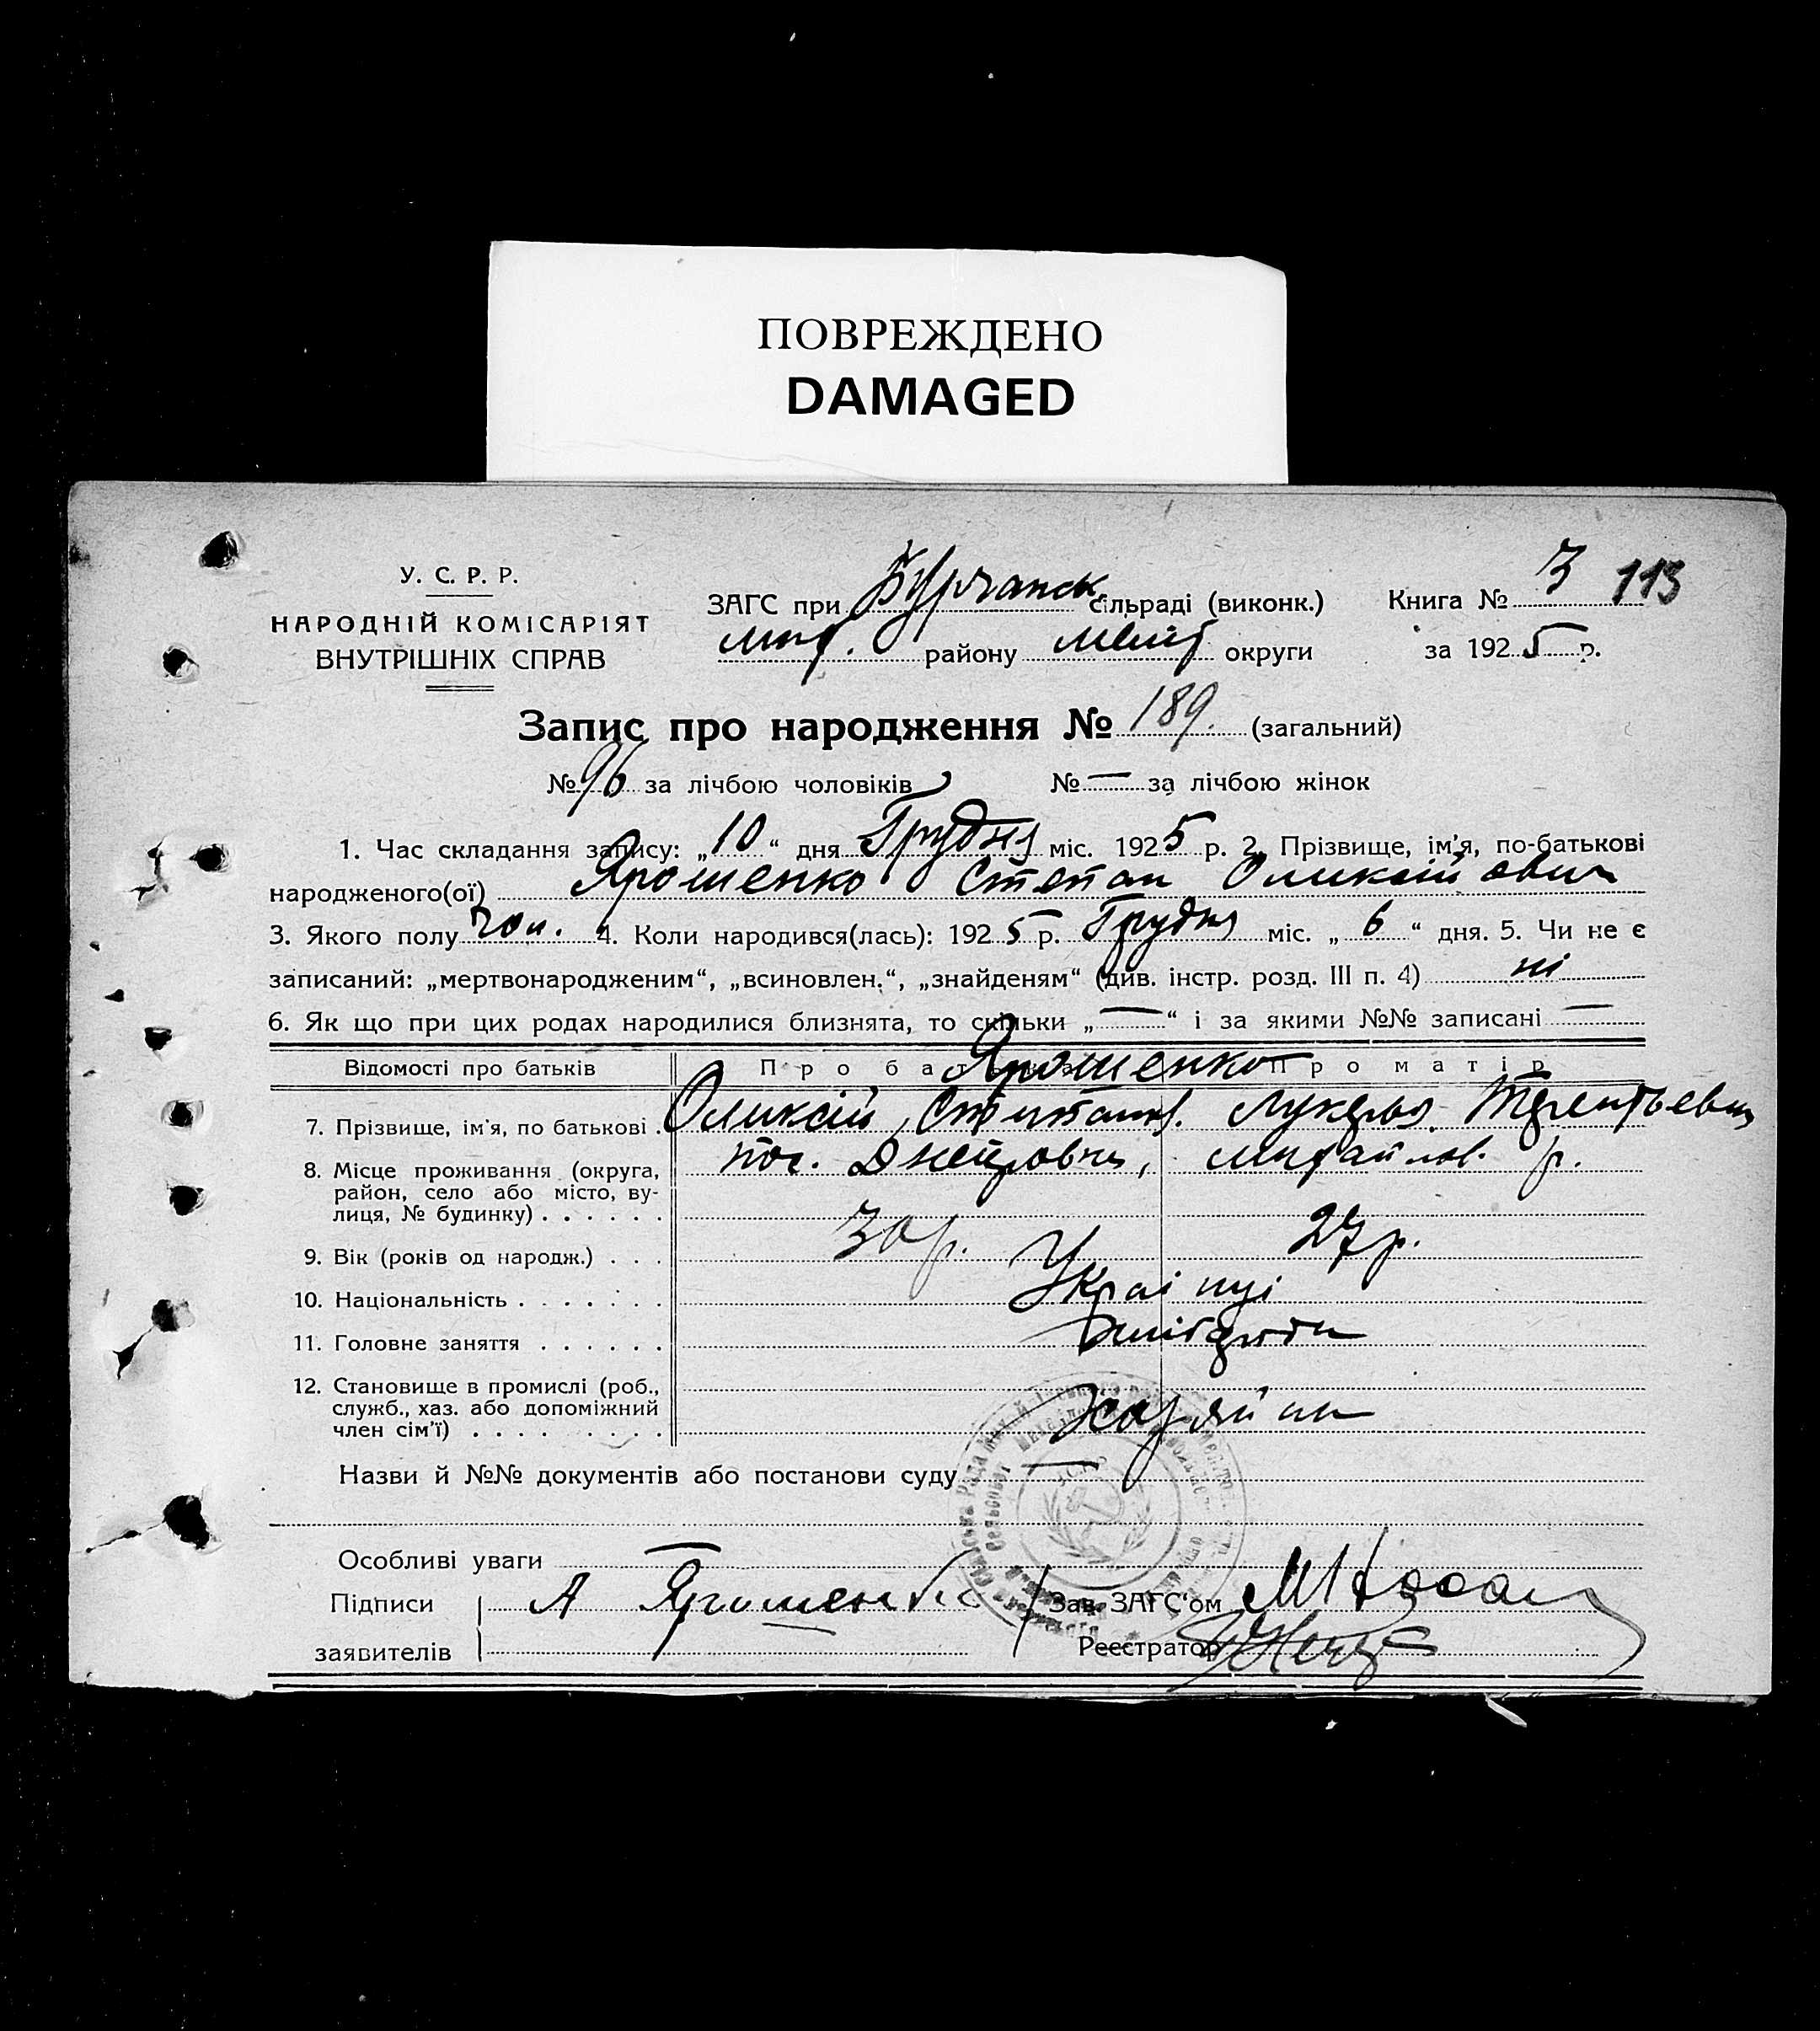 ПОВРЕЖДЕНО
DAMAGED
У. С. Р. Р.
НАРОДНІЙ КОМІСАРІЯТ
ВНУТРІШНІХ СПРАВ
ЗАГС при Бурчанск. сільраді (виконк.) Книга № 3 113
мих. району меліт округи за 1925 р.
Запис про народження № 189. (загальний)
№ 96 за лічбою чоловіків № — за лічбою жінок
1. Час складання запису: „10“ дня Грудня міс. 1925 р. 2. Прізвище, ім'я, по-батькові
народженого(ої) Ярошенко Степан Оликсійович
3. Якого полу чол. 4. Коли народився(лась): 1925 р. Грудня міс. „6“ дня. 5. Чи не є
записаний: „мертвонародженим“, „всиновлен.“, „знайденям“ (див. інстр. розд. III п. 4) ні
6. Як що при цих родах народилися близнята, то скільки „—“ і за якими №№ записані —
Відомості про батьків Про батька Про матір
Ярошенко
7. Прізвище, ім'я, по батькові . Оликсій Степанов. Лукерья Терентьевна
8. Місце проживання (округа, пос. Днепровка, михайлов. р.
район, село або місто, ву-
лиця, № будинку) . . . . . .
9. Вік (років од народж.) . . . 30 р. 27 р.
10. Національність . . . . . . . Українці
11. Головне заняття . . . . . .
12. Становище в промислі (роб.,
служб., хаз. або допоміжний Хазяїни
член сім'ї) . . . . . . . . .
Назви й №№ документів або постанови суду —
Особливі уваги —
Підписи А Ярошенко Зав. ЗАГС'ом
заявителів Реєстратор